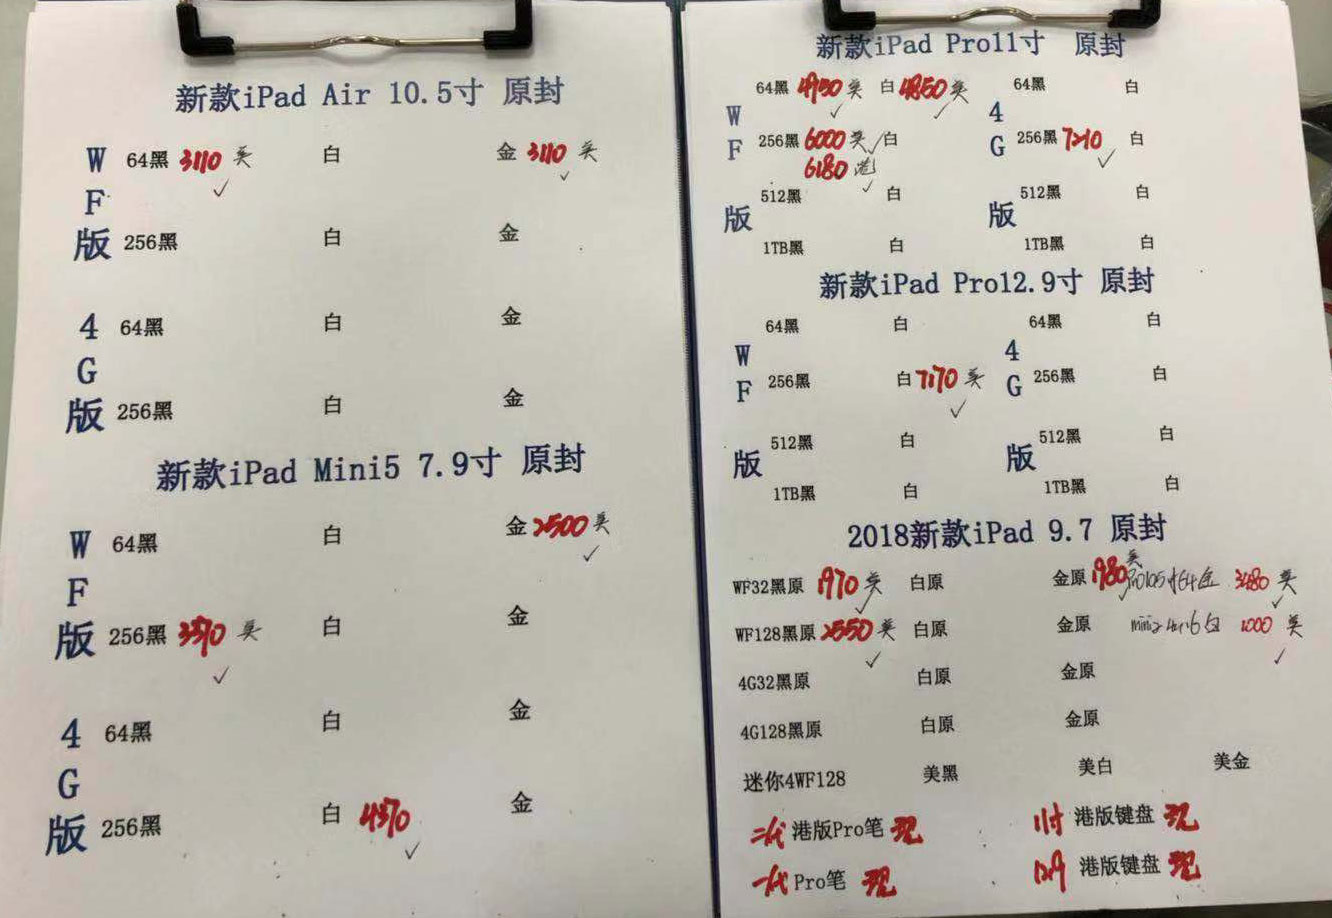 新款iPad Air 10.5寸 原封
WF版
64黑 3110 美 白 金 3110 美
256黑 白 金
4G版
64黑 白 金
256黑 白 金
新款iPad Mini5 7.9寸 原封
WF版
64黑 白 金 2500 美
256黑 3370 美 白 金
4G版
64黑 白 金
256黑 白 4370 金
新款iPad Pro11寸 原封
WF版
64黑 4950 美 白 4850 美
256黑 6000 美 白
6180 港
512黑 白
1TB黑 白
4G版
64黑 白
256黑 7210 白
512黑 白
1TB黑 白
新款iPad Pro12.9寸 原封
WF版
64黑 白
256黑 白 7170 美
512黑 白
1TB黑 白
4G版
64黑 白
256黑 白
512黑 白
1TB黑 白
2018新款iPad 9.7 原封
WF32黑原 1970 美 白原 金原 1980 美 Pro10.5寸64金 3480 美
WF128黑原 2550 美 白原 金原 mini2 4G 16白 1000 美
4G32黑原 白原 金原
4G128黑原 白原 金原
迷你4WF128 美黑 美白 美金
二代 港版Pro笔 现 11寸 港版键盘 现
一代 Pro笔 现 12.9 港版键盘 现